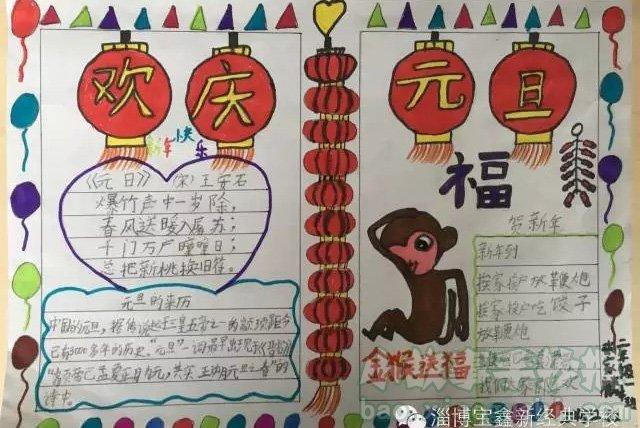 欢庆
元旦
新年快乐
《元日》 (宋)王安石
爆竹声中一岁除,
春风送暖入屠苏;
千门万户曈曈日;
总把新桃换旧符。
元旦的来历
中国的元旦,据传说起于三皇五帝之一的颛顼,距今
已有3000多年的历史。"元旦"一词最早出现于《晋书》
诗中。
福
贺新年
新年到
挨家挨户放鞭炮
挨家挨户吃饺子
放鞭炮
金猴送福
二年级一班
淄博宝鑫新经典学校